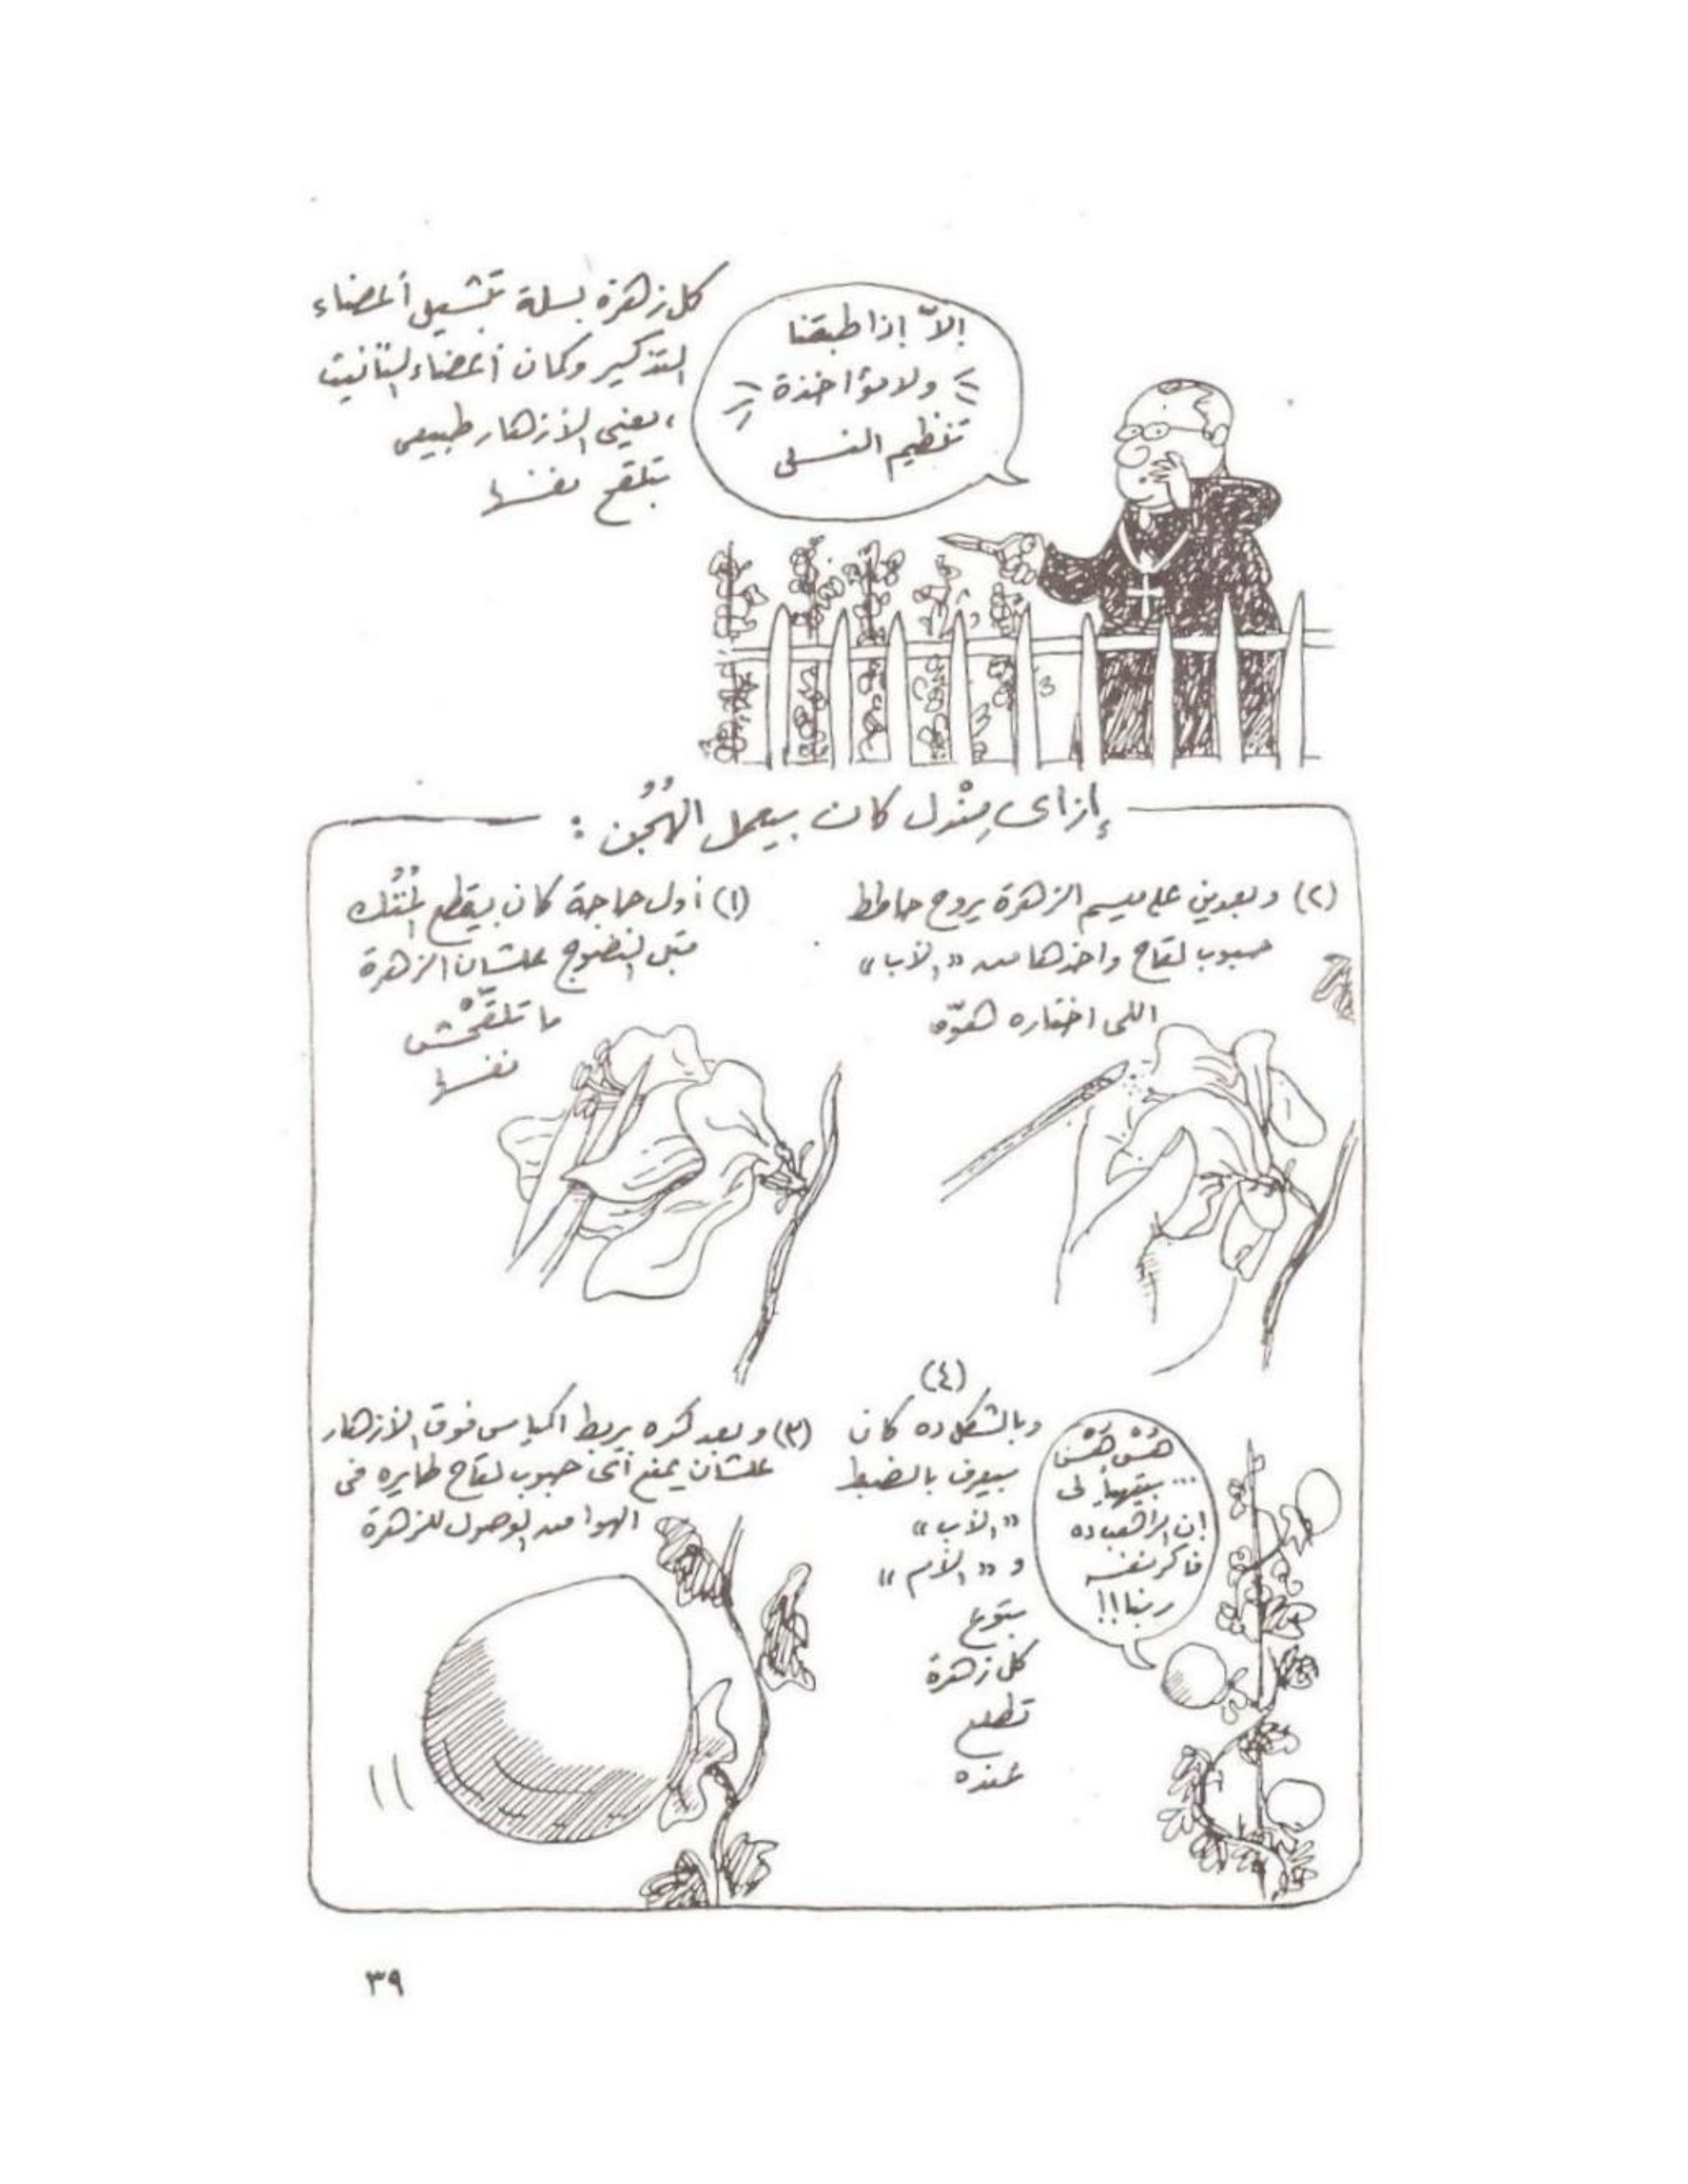 كل زهرة بسلة بتشيل أعضاء
التذكير وكمان أعضاء التأنيث
، يعنى الأزهار طبيعى
بتلقح نفسها
إلاّ إذا طبقنا
ولا مؤاخذة
تنظيم النسل
إزاى مِنْدل كان بيعمل الهُجُن :
(١) أول حاجة كان بيقطع المُتُك
قبل النضوج علشان الزهرة
ما تلقّحْش
نفسها
(٢) وبعدين على ميسم الزهرة يروح حاطط
حبوب لقاح واخدها من «الأب»
اللى اختاره هوّه
(٣) وبعد كده يربط اكياس فوق الأزهار
علشان يمنع أى حبوب لقاح طايره فى
الهوا من الوصول للزهرة
(٤)
وبالشكل ده كان
بيعرف بالضبط
«الأب»
و «الأم»
بتوع
كل زهرة
تطلع
عنده
هُسْ هُسْ
... بيتهيأ لى
إن الراهب ده
فاكر نفسه
ربنا !!
٣٩